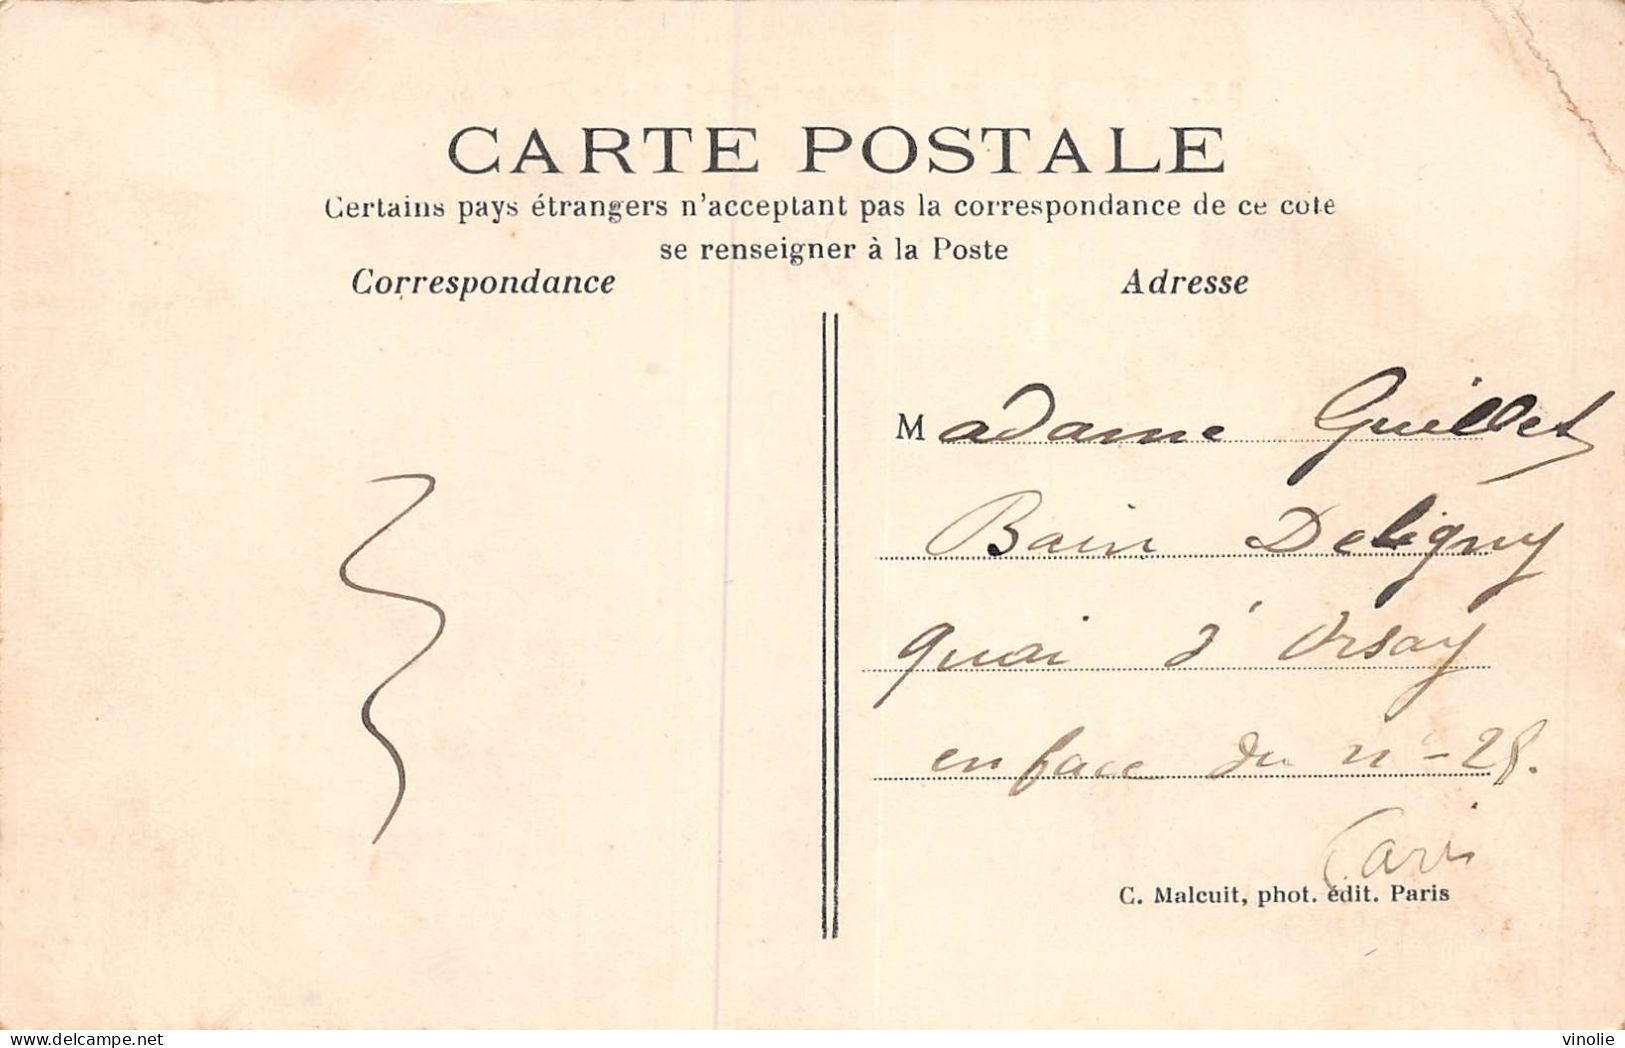 CARTE POSTALE
Certains pays étrangers n'acceptant pas la correspondance de ce coté
se renseigner à la Poste
Correspondance
Adresse
Madame Guillet
Bain Deligny
quai d'Orsay
en face du n° - 25.
Paris
C. Malcuit, phot. édit. Paris
delcampe.net
vinolie